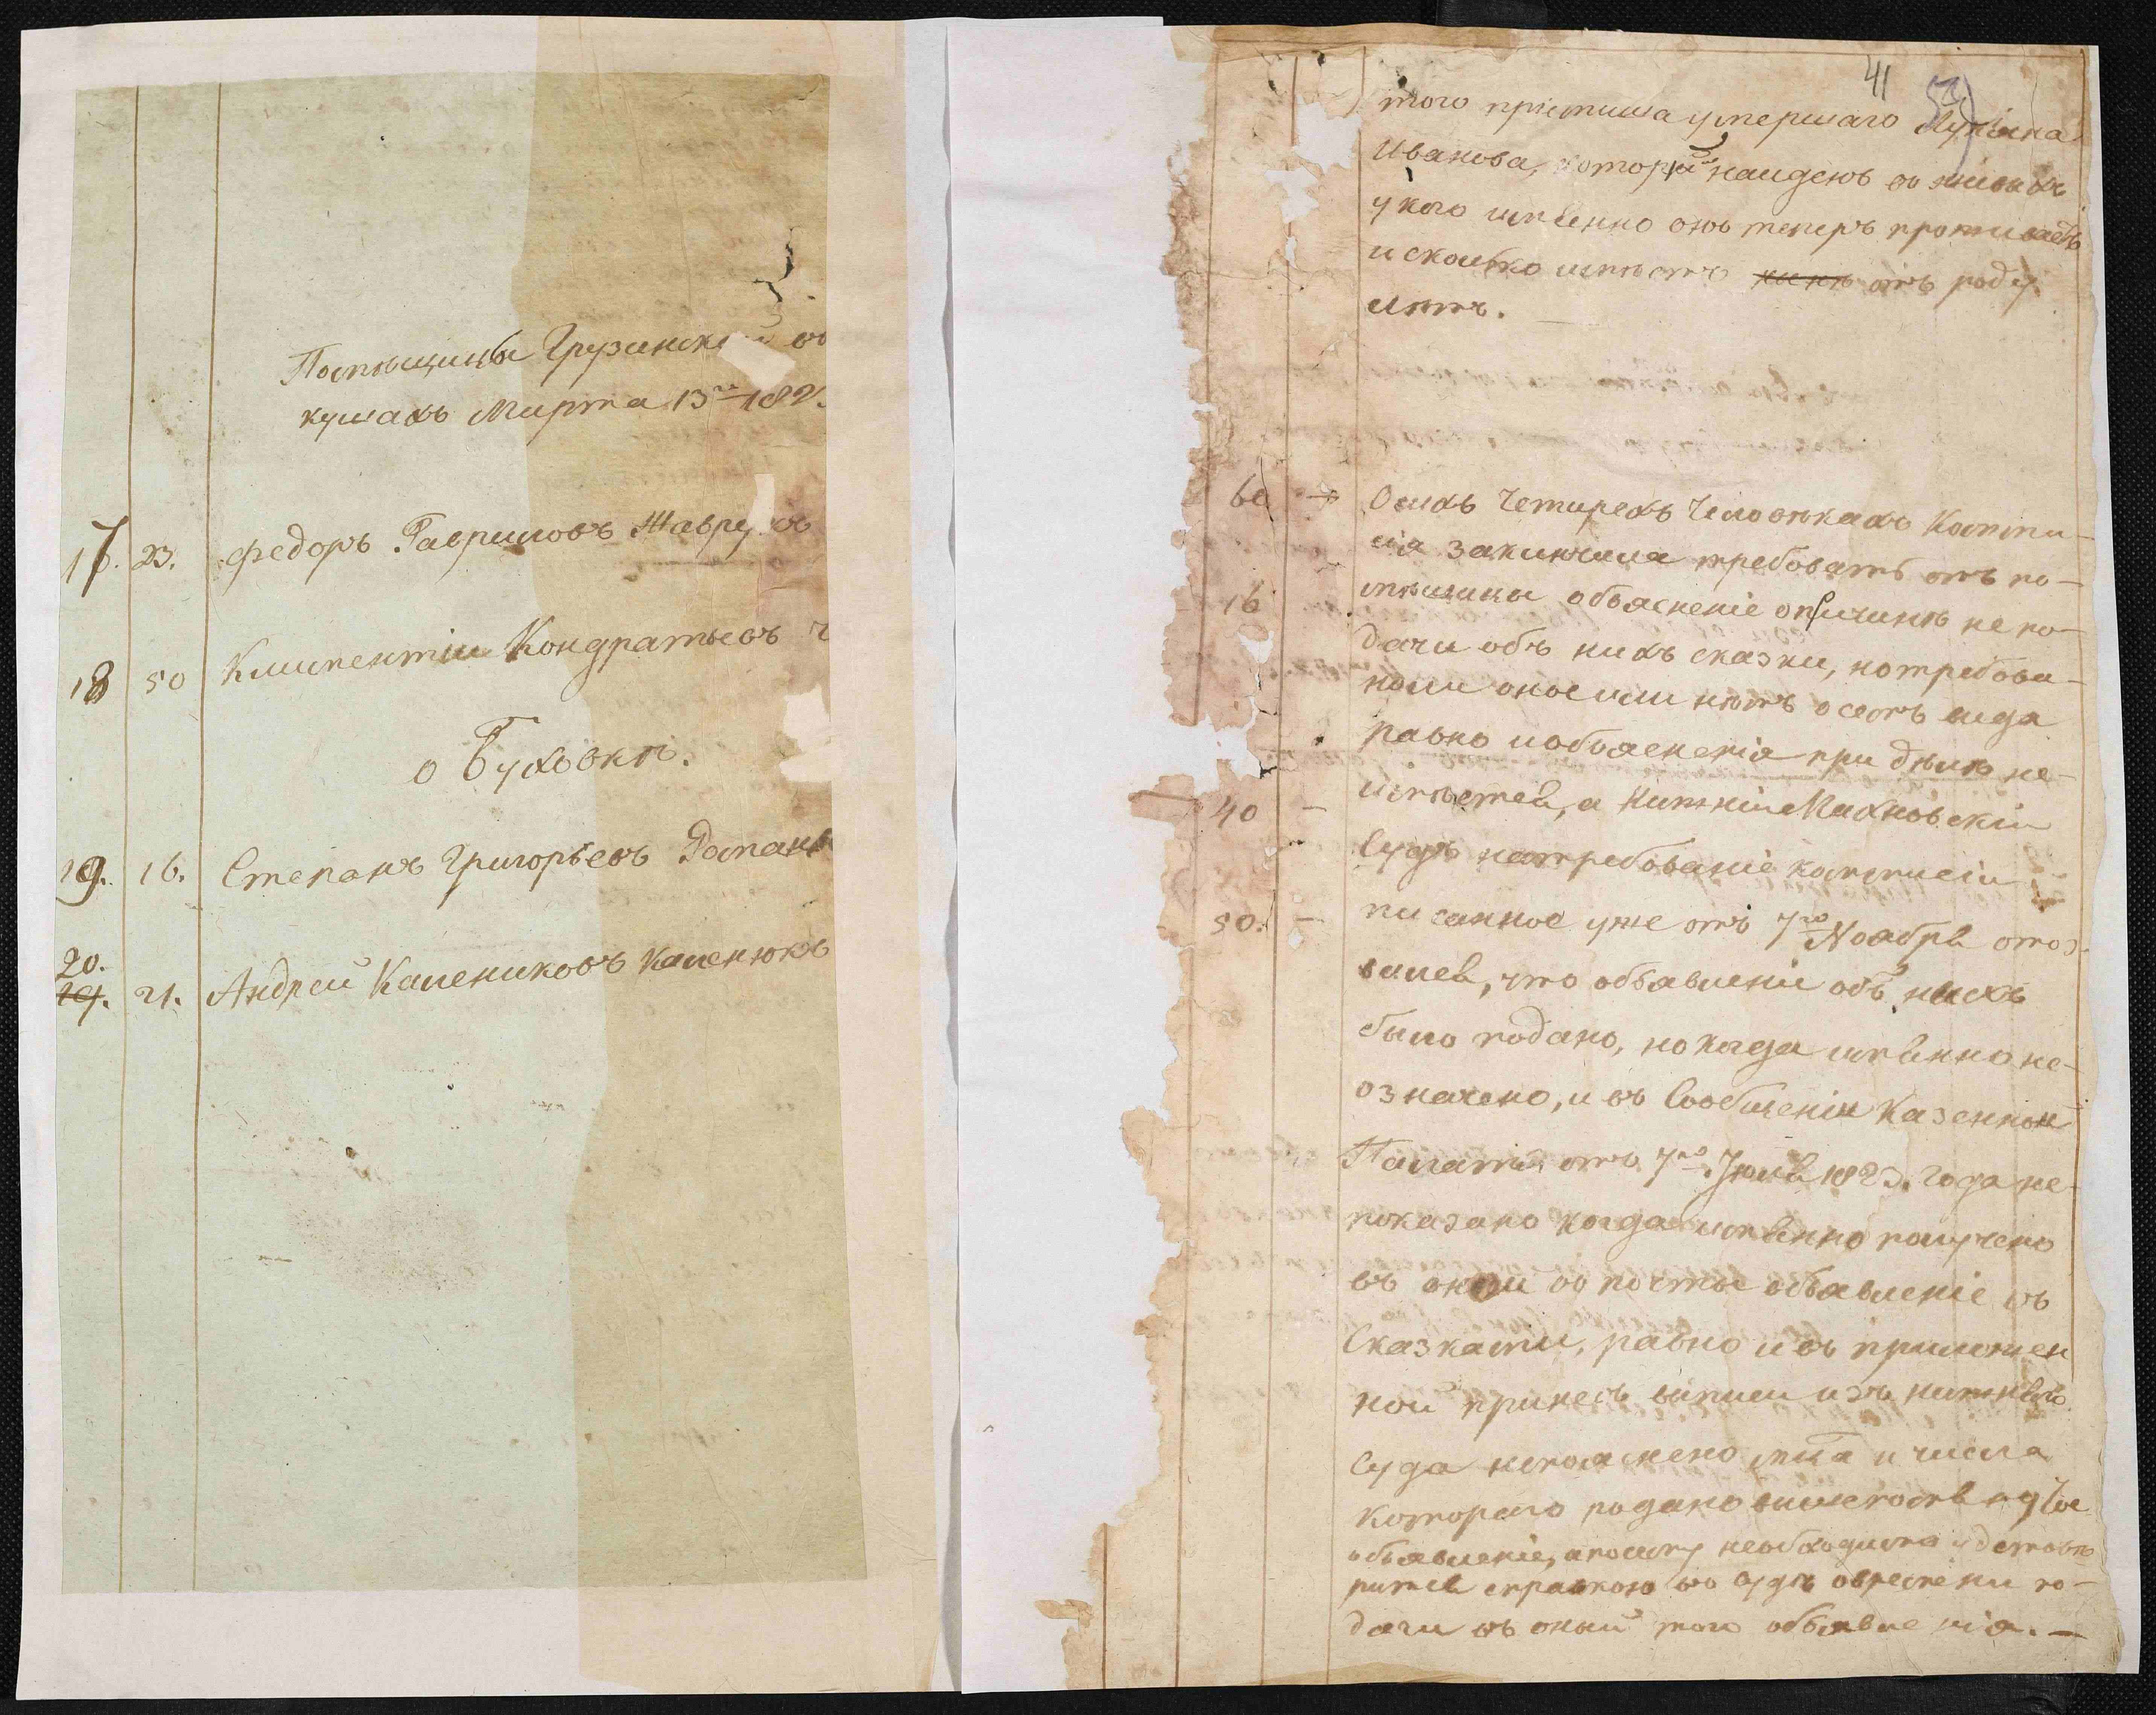 Помѣщицы Грузинской въ
кушахъ Марта 13го 182
17. 23. Федоръ Гавриловъ
18 50 Климентіи Кондратьевъ
о Буховки.
19. 16. Степанъ Григорьевъ
20.
19. 21. Андрей Калениковъ Каленюкъ
41
того пріемыша умершаго Лукіана
Иванова, которій найденъ въ живыхъ
у кого имѣнно онъ теперъ проживаетъ
и сколько имѣетъ нынѣ отъ роду
лѣтъ. —
60 — О сихъ четирехъ человѣкахъ Комми-
сія заключила требовать отъ по-
16 мѣщицы объясненіе о причинѣ не по-
дачи объ нихъ сказки, но требова-
но ли оное или нѣтъ о семъ вида
равно и объясненія при дѣлѣ не-
40 — имѣется, а Нижній Махновскій
Судъ на требованіе коммисіи
50. — писанное уже отъ 7го Ноября отоз-
вался, что объявленіе объ ныхъ
было подано, но когда имѣнно не-
означено, и въ Сообщеніи Казенной
Палаты отъ 7го Іюля 1823. года не-
показано когда имѣнно получено
въ оной со почты объявленіе съ
Сказками, равно и въ приложен
ной при несъ выписи изъ нижняго
Суда непояснено мца и числа
котораго подано
объявленіе, а посему необходимо удостовѣ-
рится справкою въ Судѣ о времени по-
дачи въ оный того объявленія. —